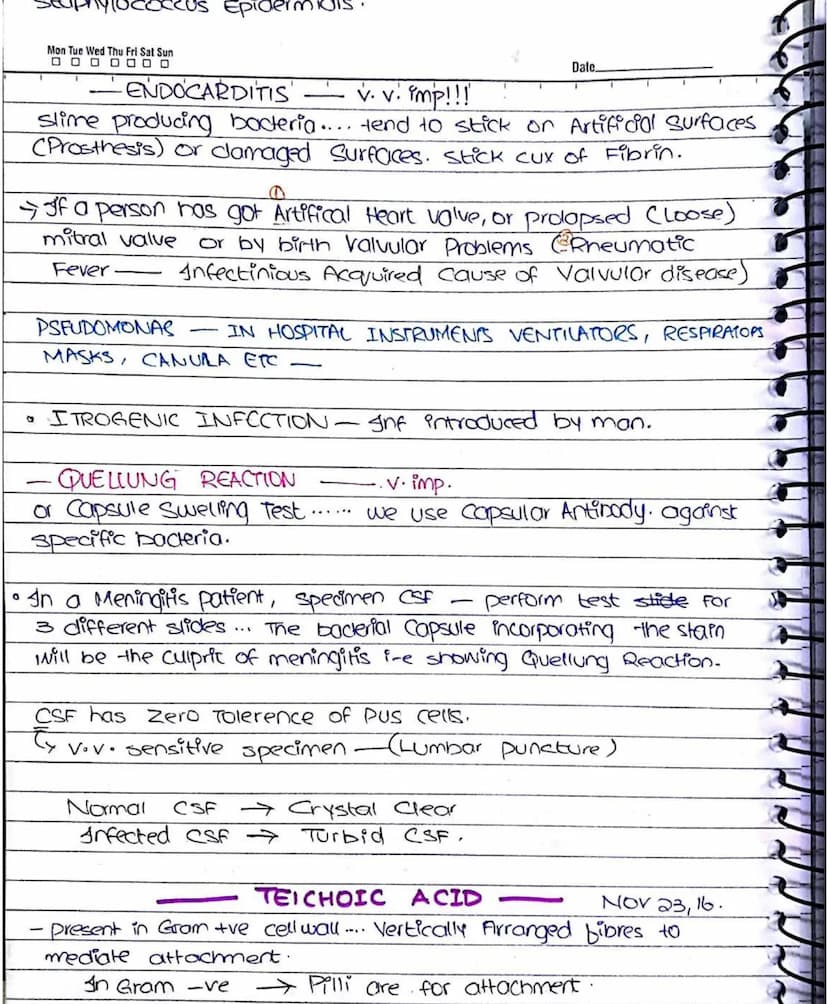 Staphylococcus Epidermidis.
Mon Tue Wed Thu Fri Sat Sun
Date
— ENDOCARDITIS — v. v. imp!!!
slime producing bacteria.... tend to stick on Artificial Surfaces
(Prosthesis) or damaged surfaces. stick cux of Fibrin.
→ If a person has got ① Artifical Heart valve, or prolapsed (loose)
mitral valve or by birth Valvular Problems (② Rheumatic
Fever — Infectinious Acquired Cause of Valvular disease)
PSEUDOMONAS — IN HOSPITAL INSTRUMENTS VENTILATORS, RESPIRATORS
MASKS, CANULA ETC —
• ITROGENIC INFECTION — Inf introduced by man.
— QUELLUNG REACTION — v. imp.
or Capsule Swelling Test...... we use Capsular Antibody. against
specific bacteria.
• In a Meningitis patient, specimen CSF — perform test slide for
3 different slides... The bacterial Capsule incorporating the stain
will be the culprit of meningitis i-e showing Quellung Reaction.
CSF has Zero Tolerence of Pus cells.
↳ v.v. sensitive specimen — (Lumbar puncture)
Normal CSF → Crystal Clear
Infected CSF → Turbid CSF.
— TEICHOIC ACID — NOV 23, 16.
- present in Gram +ve cell wall.... Vertically Arranged fibres to
mediate attachment.
In Gram -ve → Pilli are for attachment.